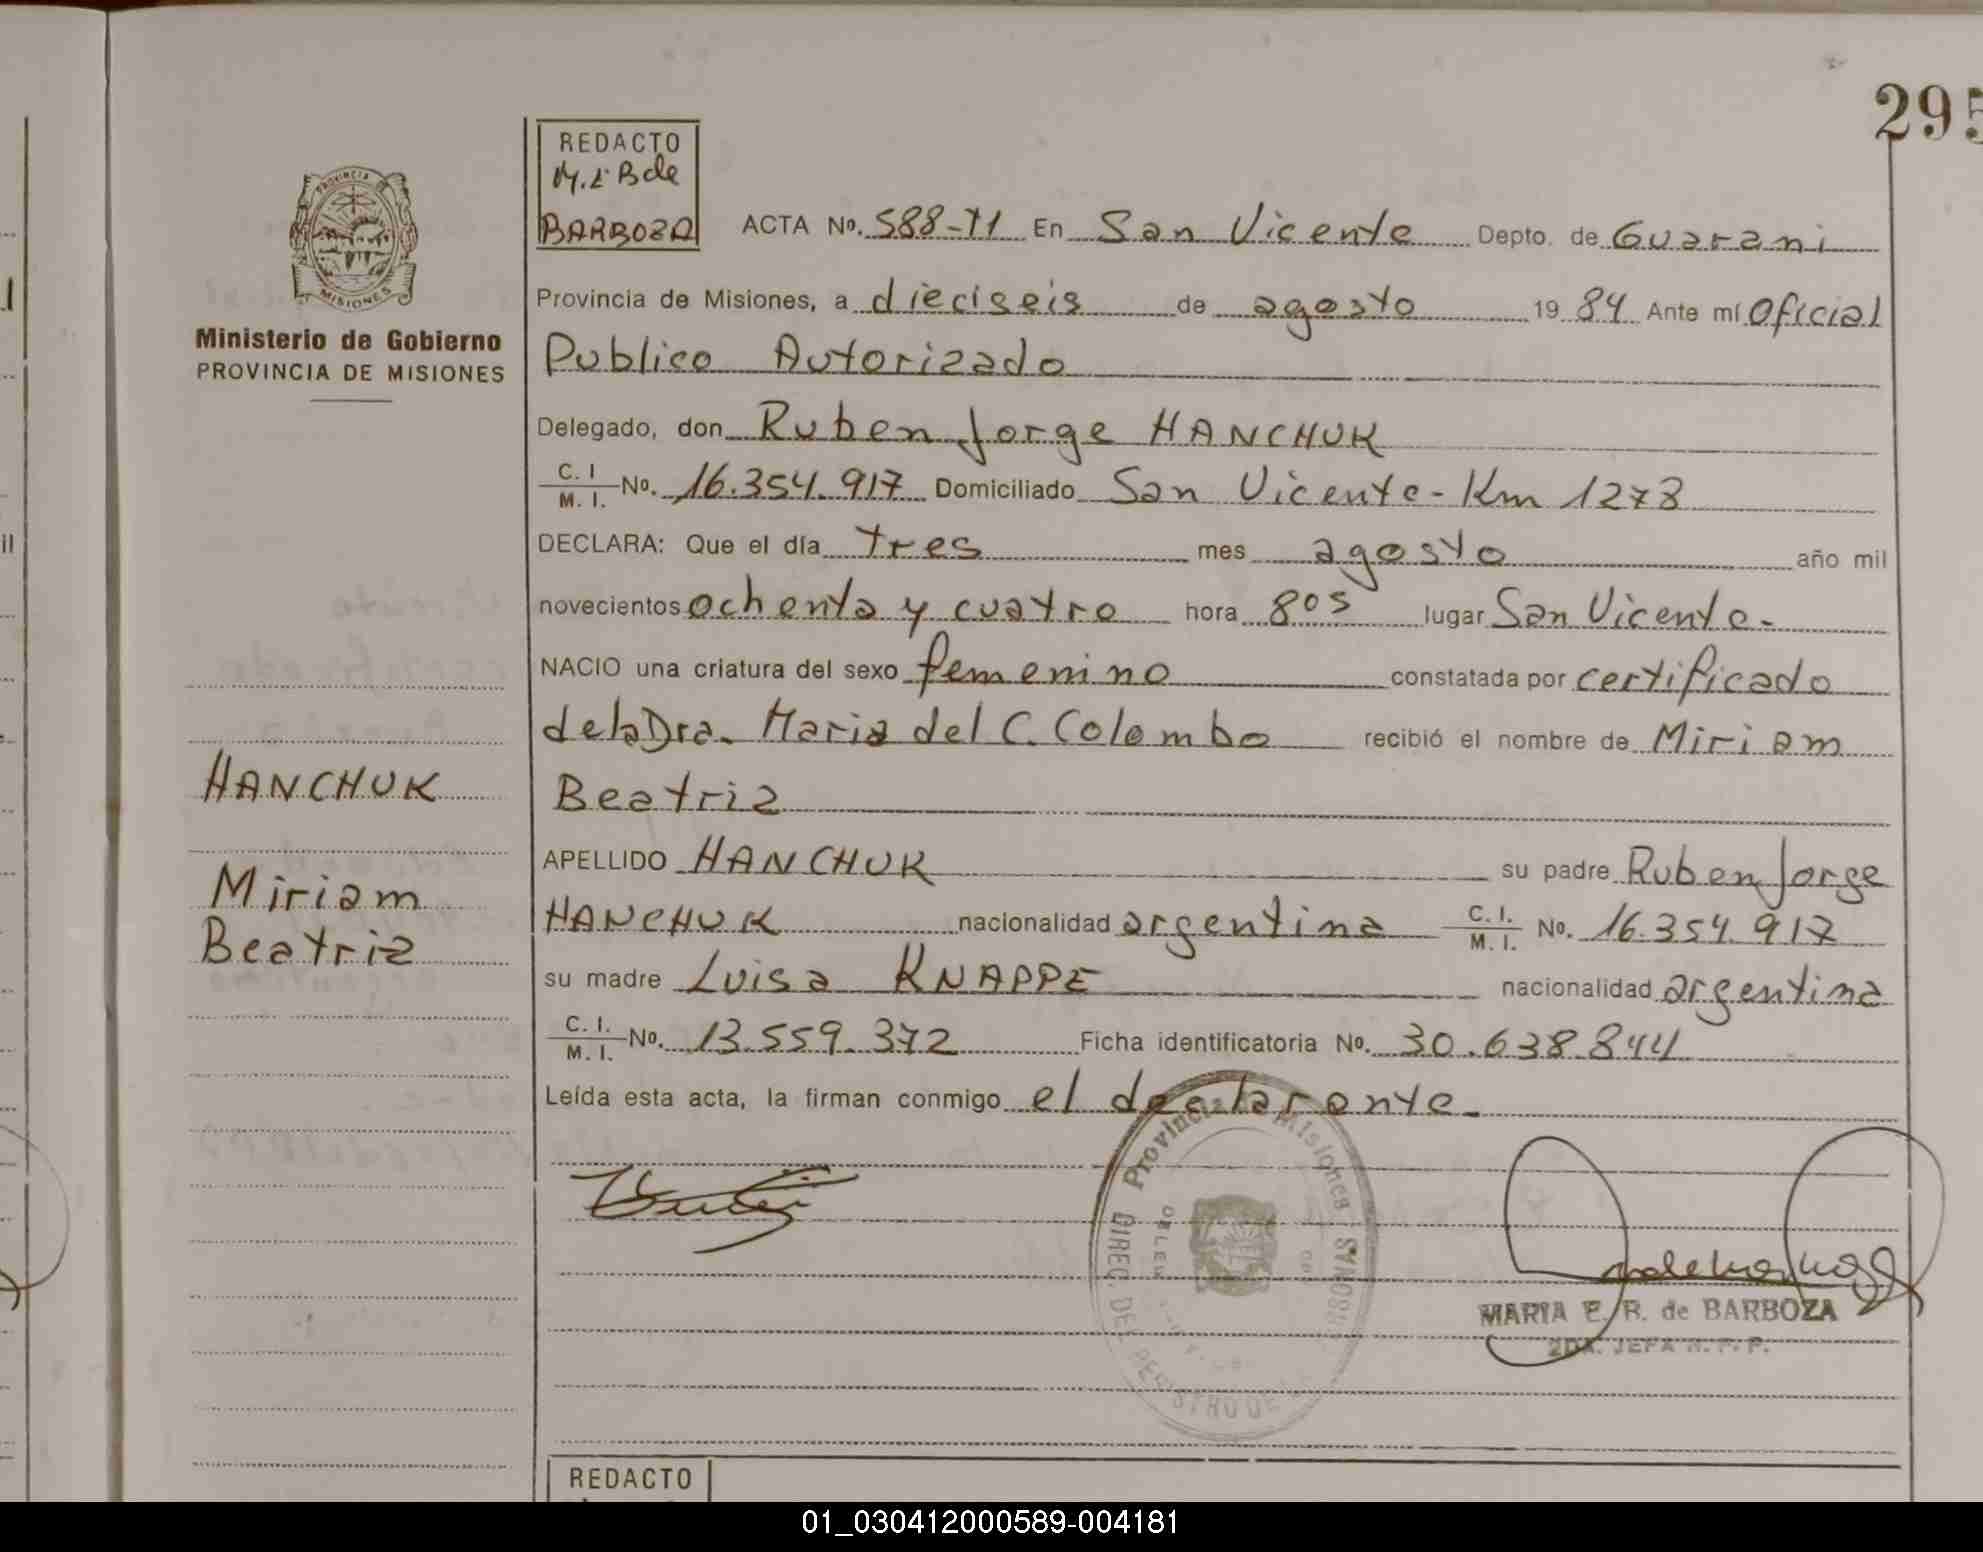 295
REDACTO
M. E. B de
BARBOZA
PROVINCIA DE
MISIONES
Ministerio de Gobierno
PROVINCIA DE MISIONES
ACTA No. 588-T1 En San Vicente Depto. de Guarani
Provincia de Misiones, a dieciseis de agosto 1984 Ante mí Oficial
Publico Autorizado
Delegado, don Ruben Jorge HANCHUK
C. I. / M. I. No. 16.354.917 Domiciliado San Vicente - Km 1273
DECLARA: Que el día tres mes agosto año mil
novecientos ochenta y cuatro hora 8 05 lugar San Vicente.-
NACIO una criatura del sexo femenino constatada por certificado
de la Dra. Maria del C. Colombo recibió el nombre de Miriam
Beatriz
APELLIDO HANCHUK su padre Ruben Jorge
HANCHUK nacionalidad argentina C. I. / M. I. No. 16.354.917
su madre Luisa KNAPPE nacionalidad argentina
C. I. / M. I. No. 13.559.372 Ficha identificatoria No. 30.638.844
Leída esta acta, la firman conmigo el declarante.-
HANCHUK
Miriam
Beatriz
Provincia Misiones
DIREC. DEL REGISTRO DE
MARIA E. B. de BARBOZA
2DA. JEFA R. P. P.
REDACTO
01_030412000589-004181